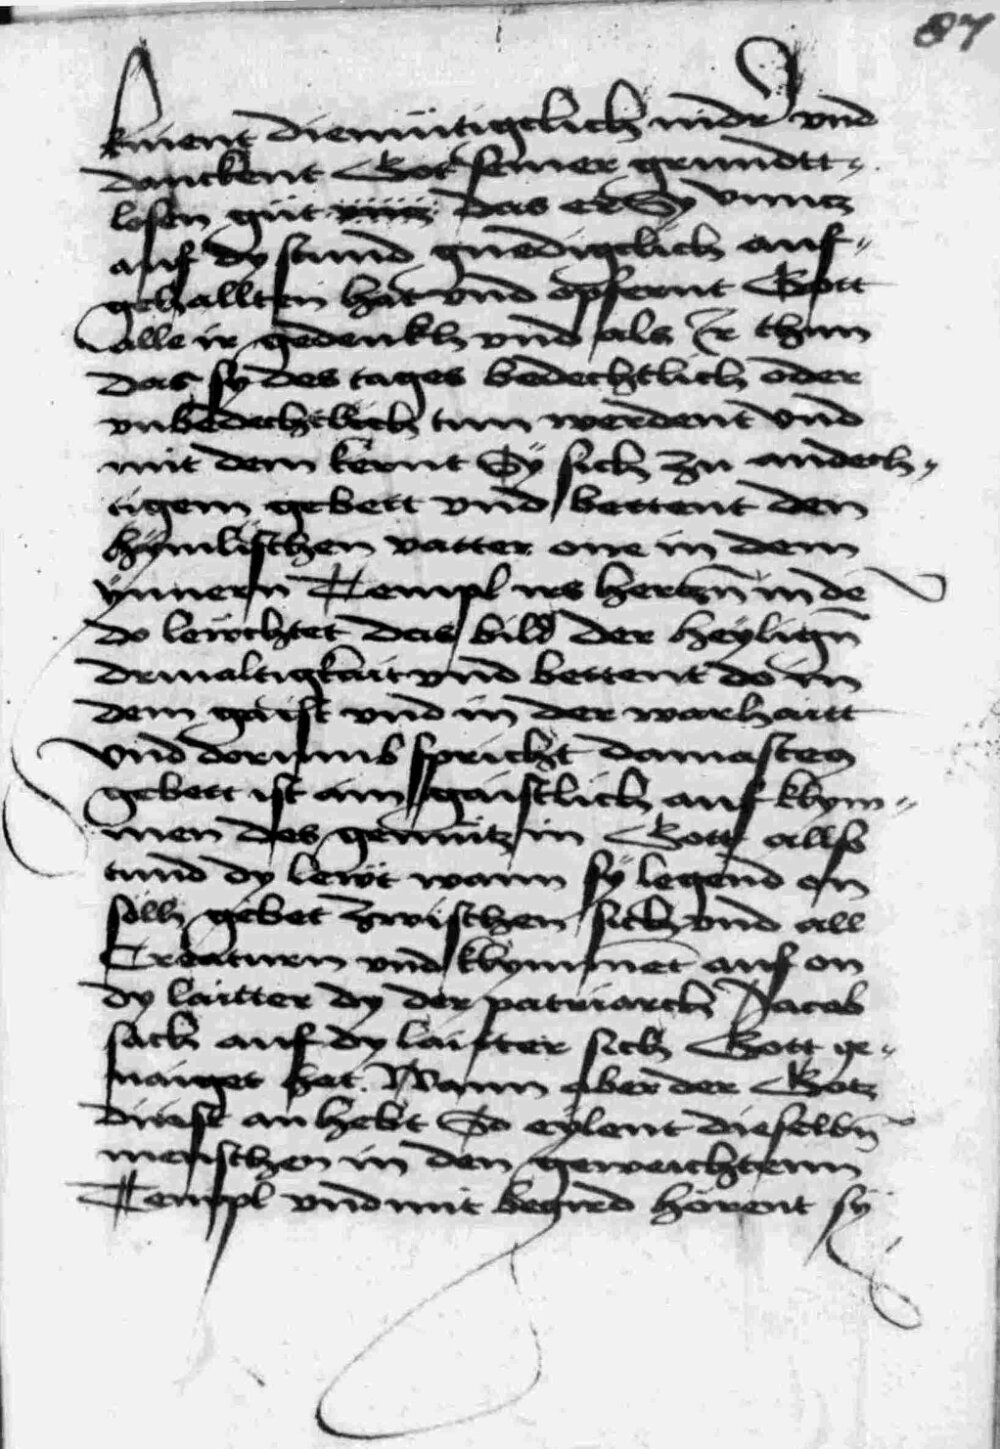 87
knient diemütigclich nidr vnd
danckent Got seiner grundtt-
losen güt das er Sy vnntz
auf dy stund gnedigclich auf-
gehallten hat vnd opfernt Gott
alle ir gedenkh vnd als Ir thun
das sy des tages bedechtlich oder
vnbedechtlich tun werdent vnd
mit dem kernt Sÿ sich zu andech-
tigem gebett vnd bettent den
hÿmlischen vatter one in dem
ÿnnern Templ irs hertzn̄ in de
do lewchtet das bild der heÿlign̄
driualtigkait vnd bettent do in
dem gaist vnd in der warhaitt
vnd dorumb spricht damasten9
gebett ist ain gaistlich auf klym-
men des gemütz in Gott allso
tund dy lewt wann sÿ legend on
sölh gebet zwischen sich vnd all
Creaturn vnd klymmet auf on
dy laitter dy der patriarch Jacob
sach auf dy laitter sich Gott ge-
naiget hat. Wann aber der Gotz
dinst an hebt So eylent dieselbn̄
menschen in den geweichtenn
Templ vnd mit begird hörent sÿ